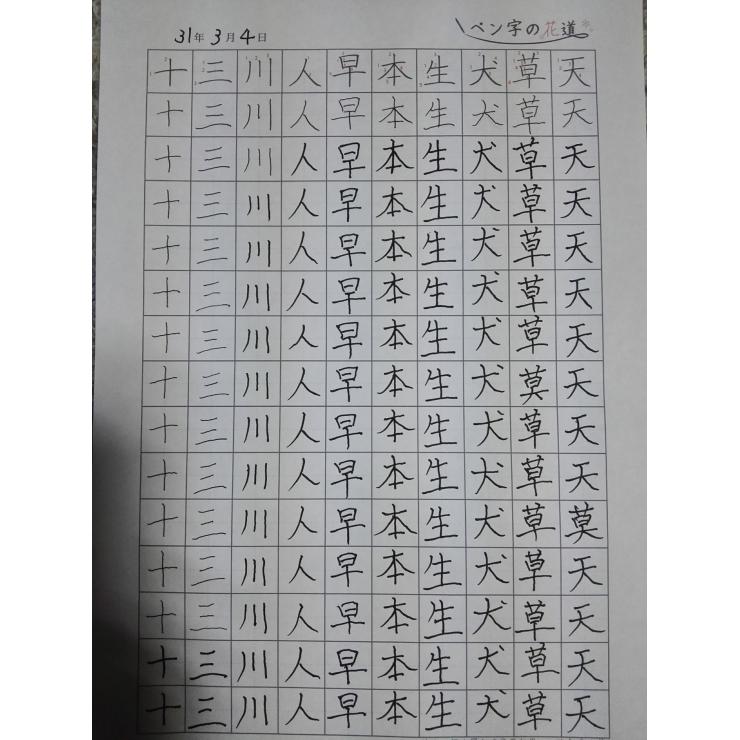 31年3月4日
ペン字の花道
十三川人早本生犬草天
十三川人早本生犬草天
十三川人早本生犬草天
十三川人早本生犬草天
十三川人早本生犬草天
十三川人早本生犬草天
十三川人早本生犬草天
十三川人早本生犬莫天
十三川人早本生犬草天
十三川人早本生犬草天
十三川人早本生犬草莫
十三川人早本生犬草天
十三川人早本生犬草天
十三川人早本生犬草天
十三川人早本生犬草天